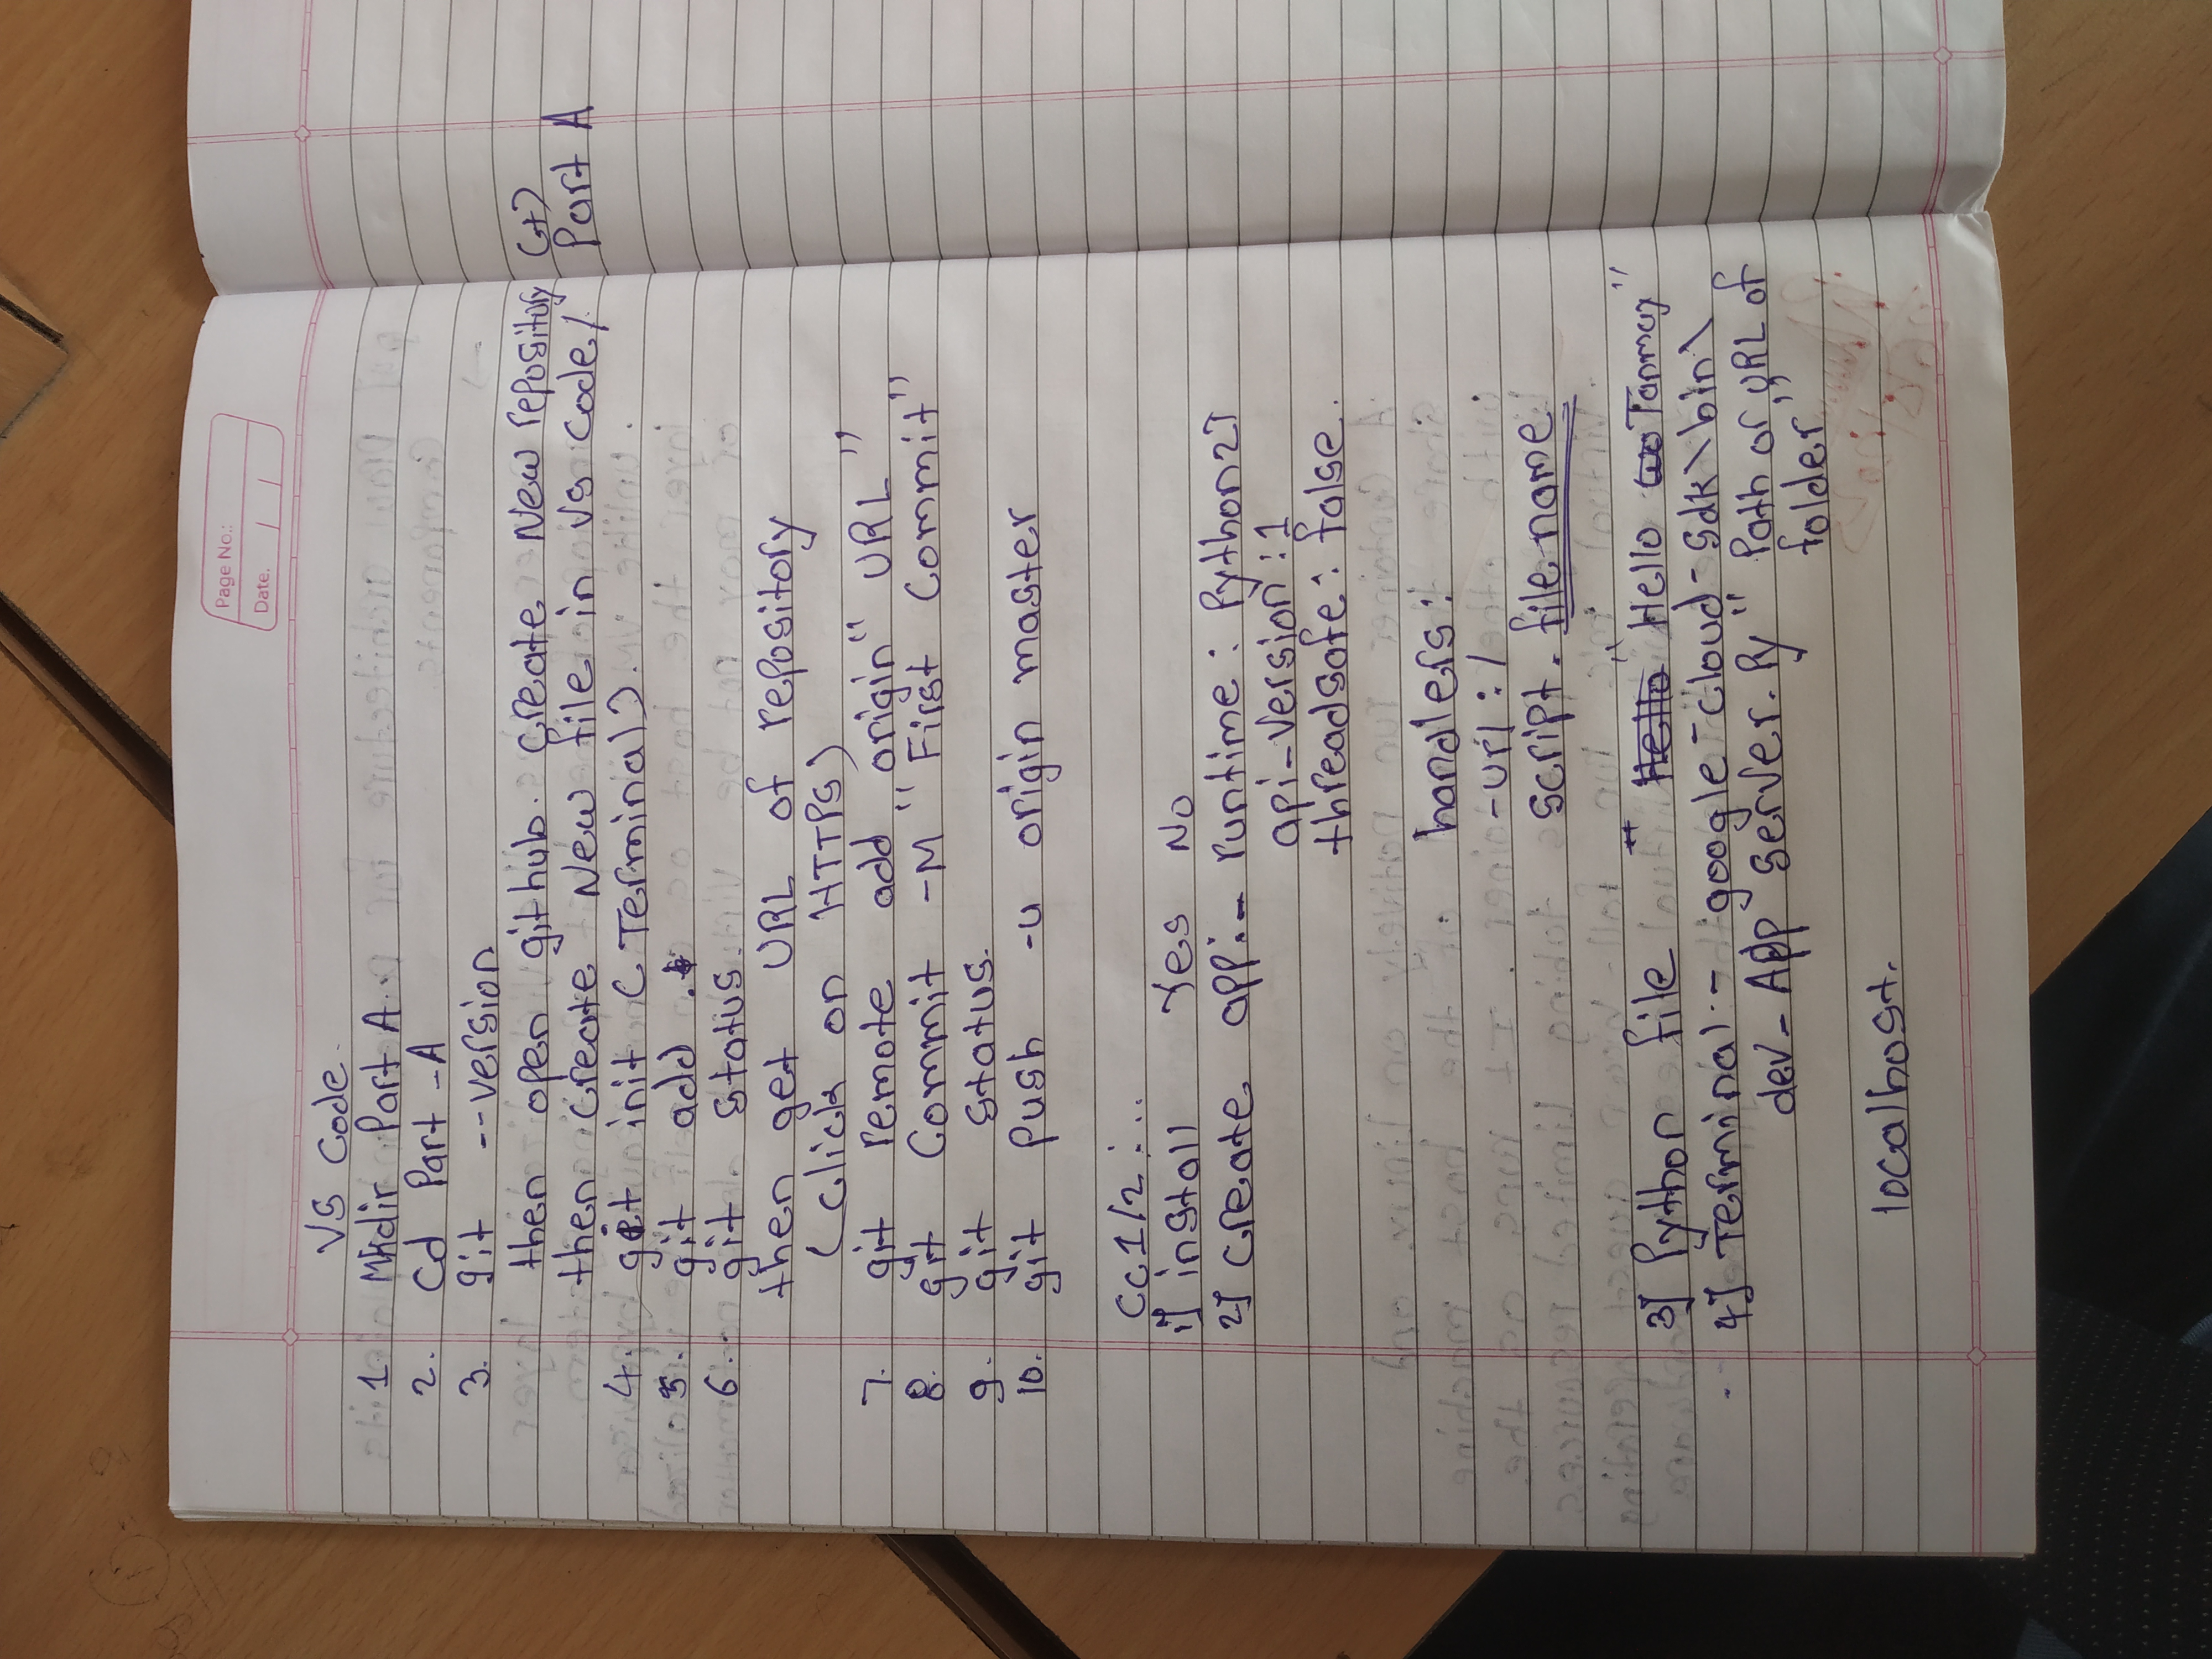 Page No.:
Date. / /
VS Code.
1. Mkdir Part A.
2. Cd Part -A
3. git --version
then open github. Create New repository (+)
then Create New file in VS Code/ Part A
4. git init (Terminal).
5. git add .
6. git status.
then get URL of repository
(Click on HTTPS)
7. git remote add origin "URL"
8. git Commit -M "First Commit"
9. git status.
10. git Push -u origin master
CC1/2:..
1] install Yes No
2] Create app:- runtime: Python27
api-version:1
threadsafe: false.
handlers:
-url:/
script. file name
3] Python file "Hello Tanmay"
4] Terminal:- google-cloud-sdk\bin\
dev-App server.Py "Path or URL of
folder"
localhost.